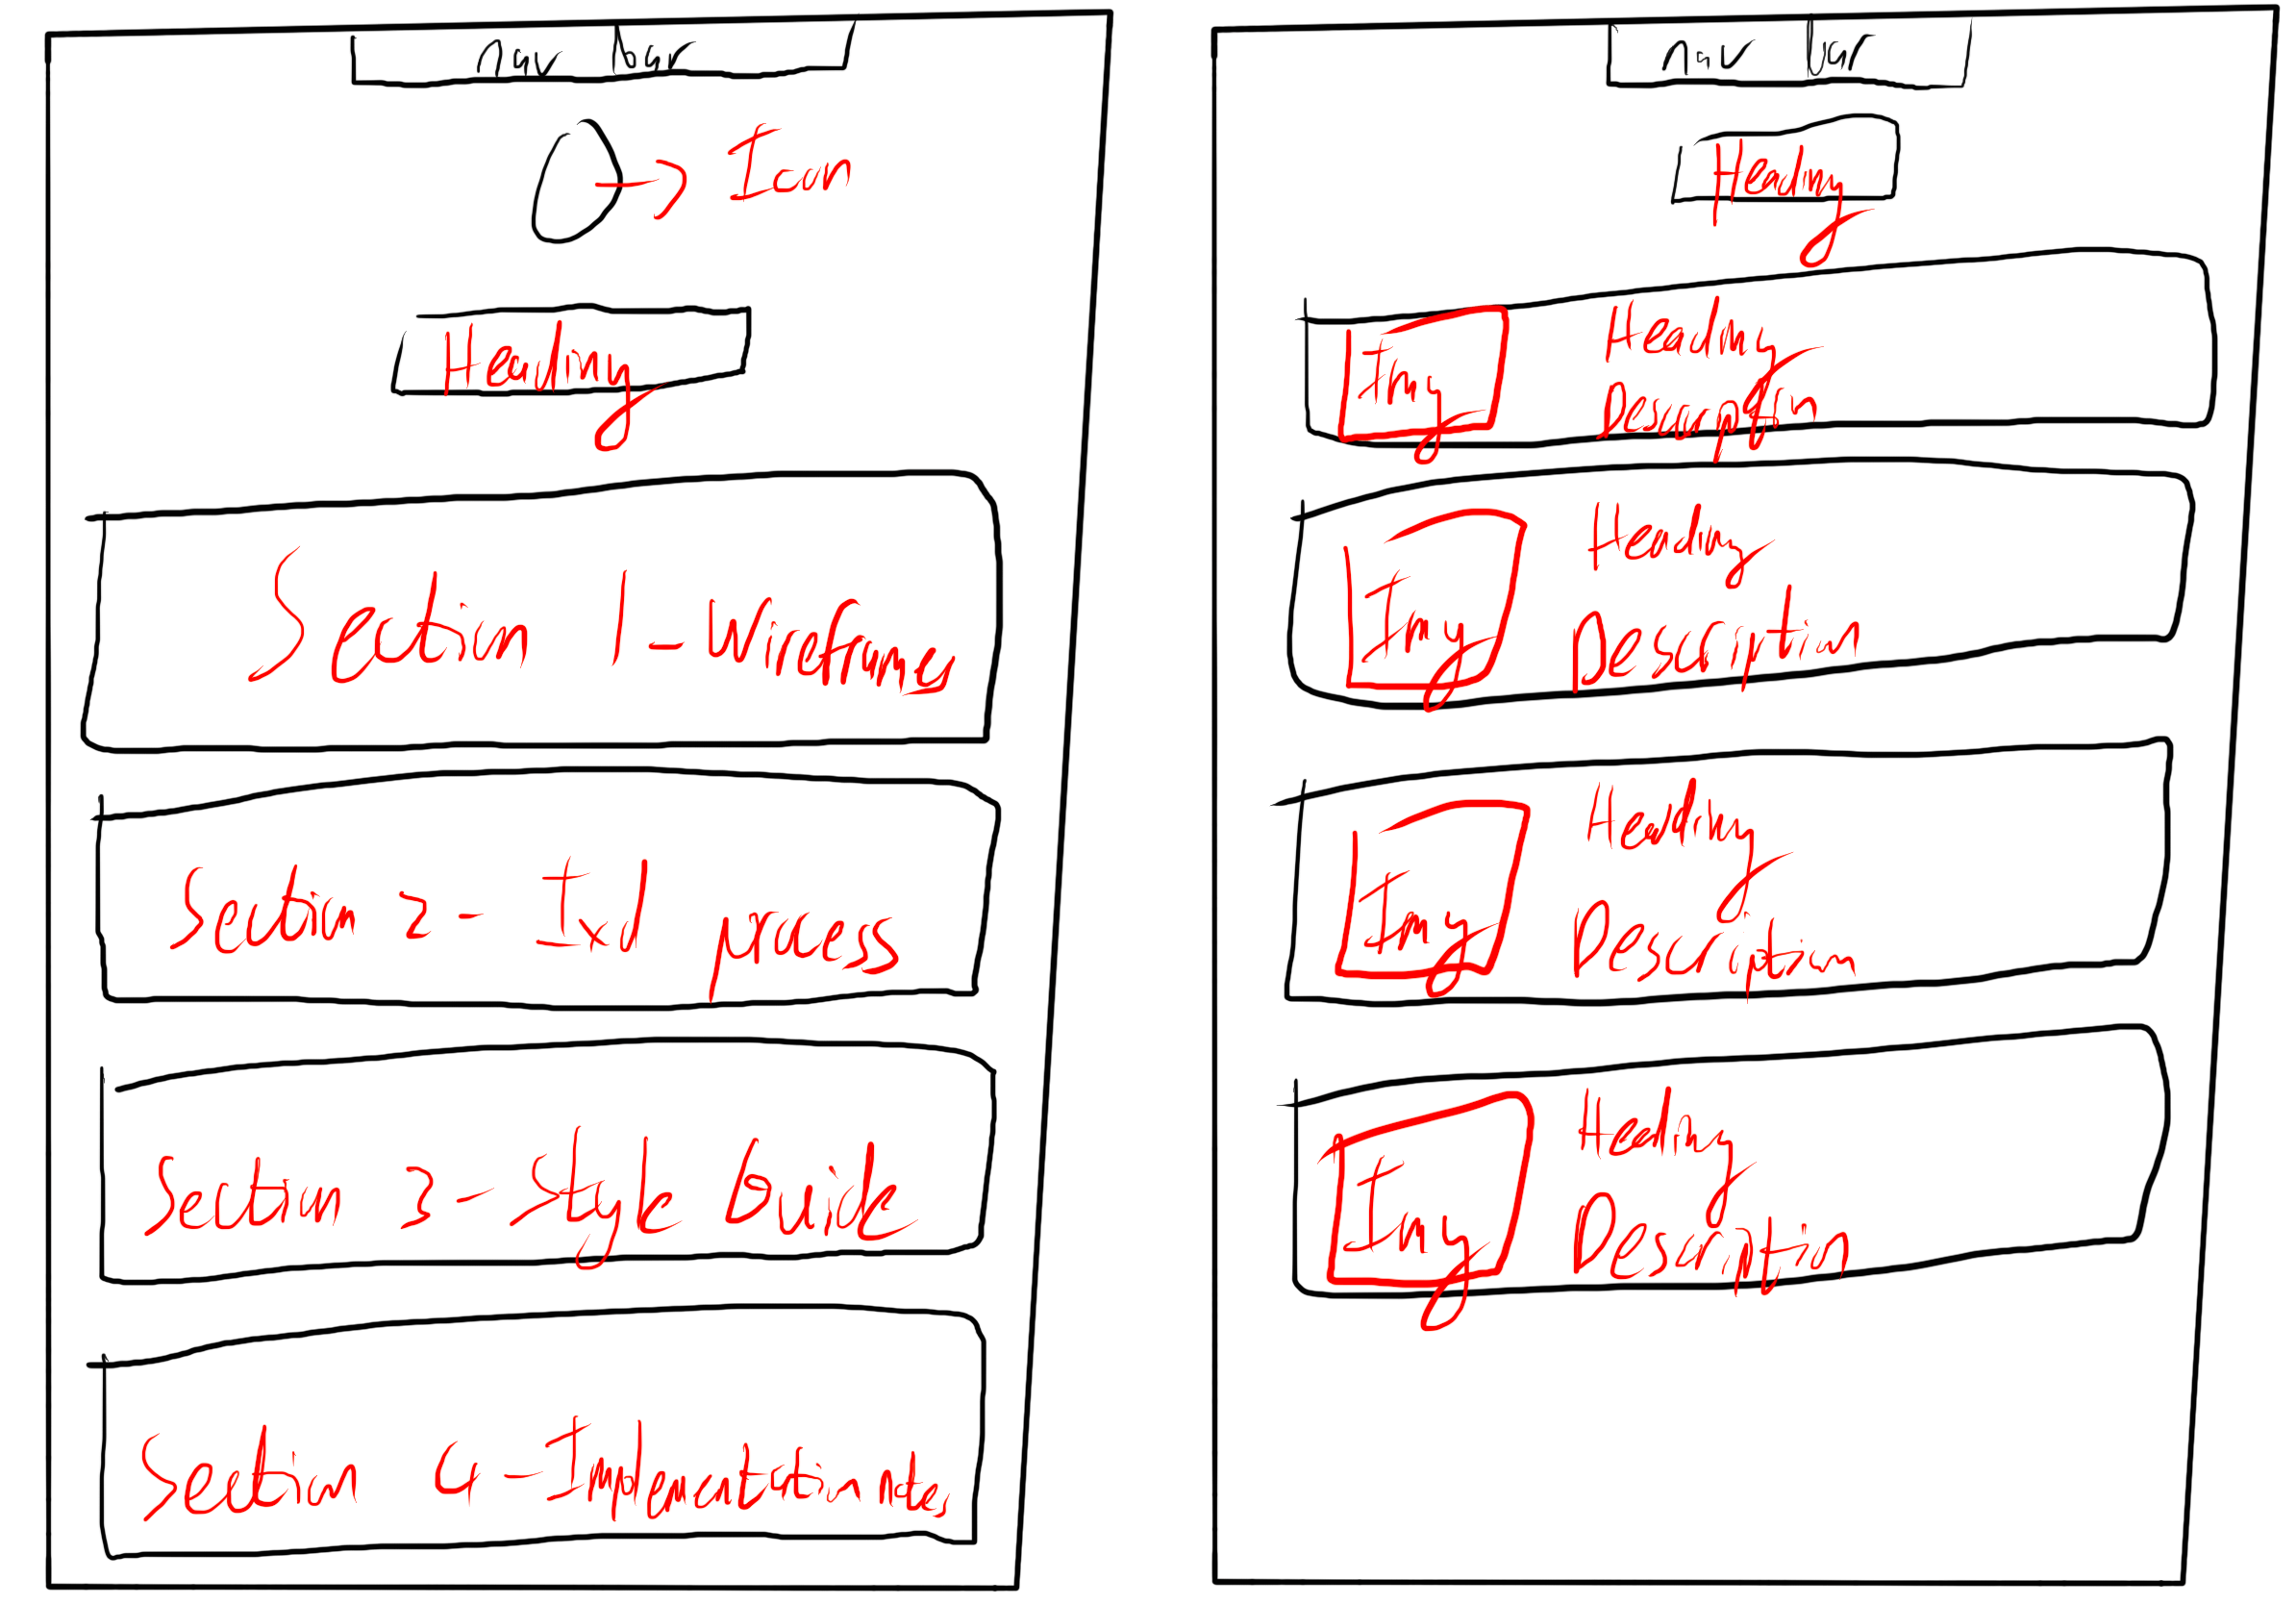 nav bar
Icon
Heading
Section 1-Wireframes
Section 2- Ixd process
Section 3-Style Guide
Section 4-Implementation notes
nav bar
Heading
Img
Heading
Description
Img
Heading
Description
Img
Heading
Description
Img
Heading
Description